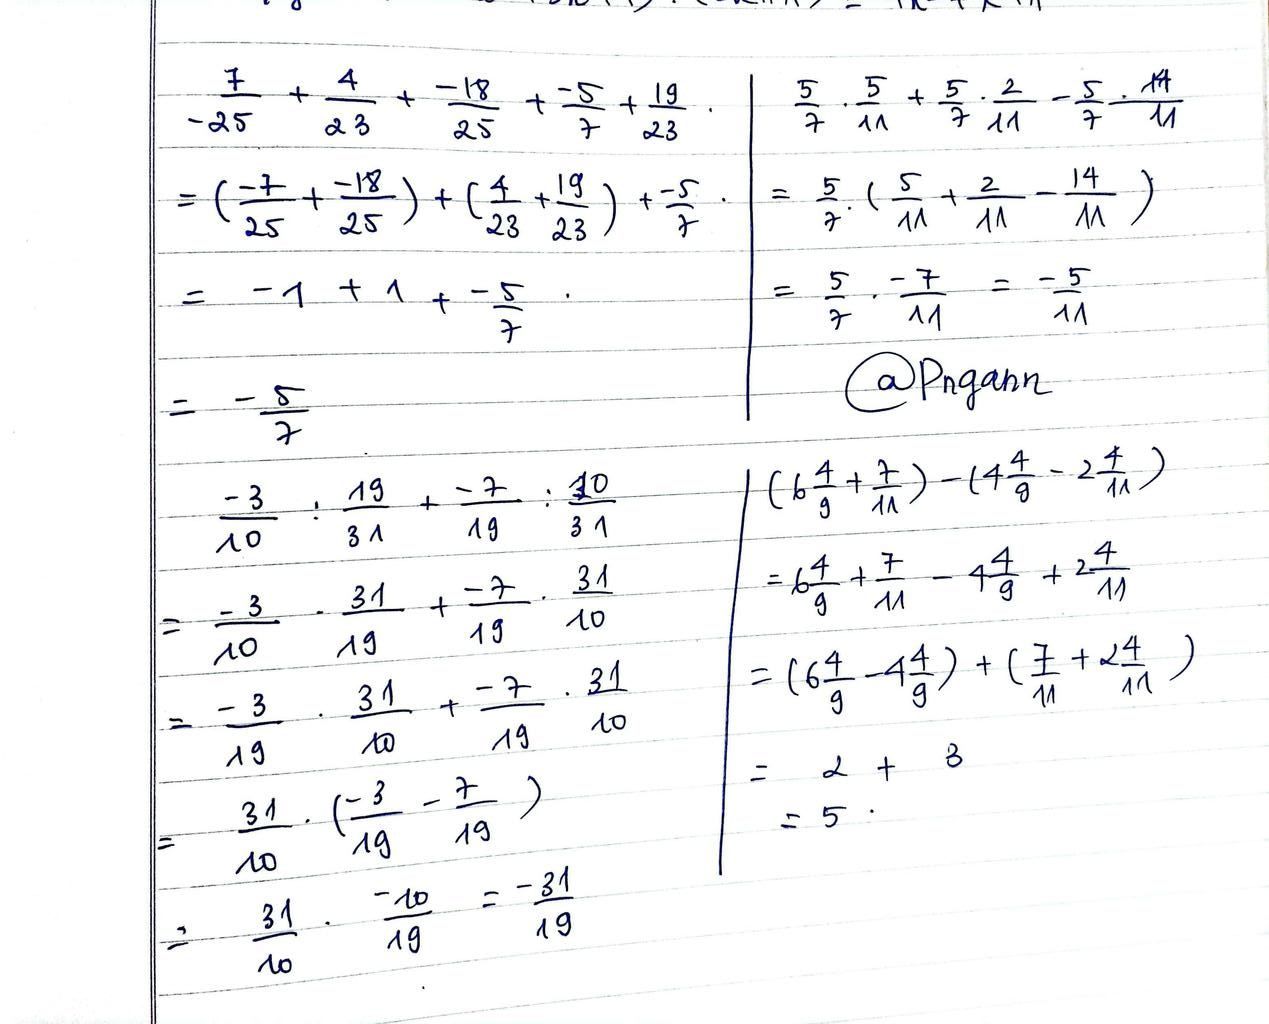 7/-25 + 4/23 + -18/25 + -5/7 + 19/23 .
= (-7/25 + -18/25) + (4/23 + 19/23) + -5/7 .
= -1 + 1 + -5/7 .
= -5/7
5/7 . 5/11 + 5/7 . 2/11 - 5/7 . 14/11
= 5/7 . (5/11 + 2/11 - 14/11)
= 5/7 . -7/11 = -5/11
@Pngann
-3/10 : 19/31 + -7/19 : 10/31
= -3/10 . 31/19 + -7/19 . 31/10
= -3/19 . 31/10 + -7/19 . 31/10
= 31/10 . (-3/19 - 7/19)
= 31/10 . -10/19 = -31/19
(6 4/9 + 7/11) - (4 4/9 - 2 4/11)
= 6 4/9 + 7/11 - 4 4/9 + 2 4/11
= (6 4/9 - 4 4/9) + (7/11 + 2 4/11)
= 2 + 3
= 5 .